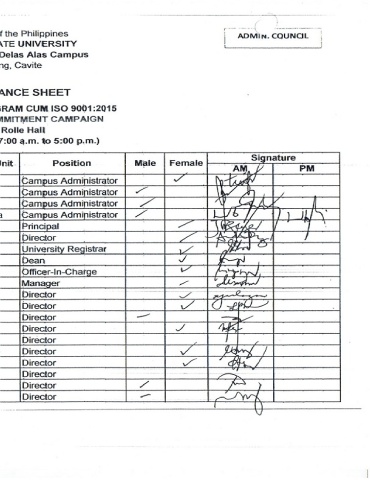 of the Philippines
ATE UNIVERSITY
Delas Alas Campus
ng, Cavite
ADMIN. COUNCIL
ANCE SHEET
GRAM CUM ISO 9001:2015
MMITMENT CAMPAIGN
Rolle Hall
7:00 a.m. to 5:00 p.m.)
Unit Position Male Female Signature
AM PM
Campus Administrator
Campus Administrator
Campus Administrator
a Campus Administrator
Principal
Director
University Registrar
Dean
Officer-In-Charge
Manager
Director
Director
Director
Director
Director
Director
Director
Director
Director
Director